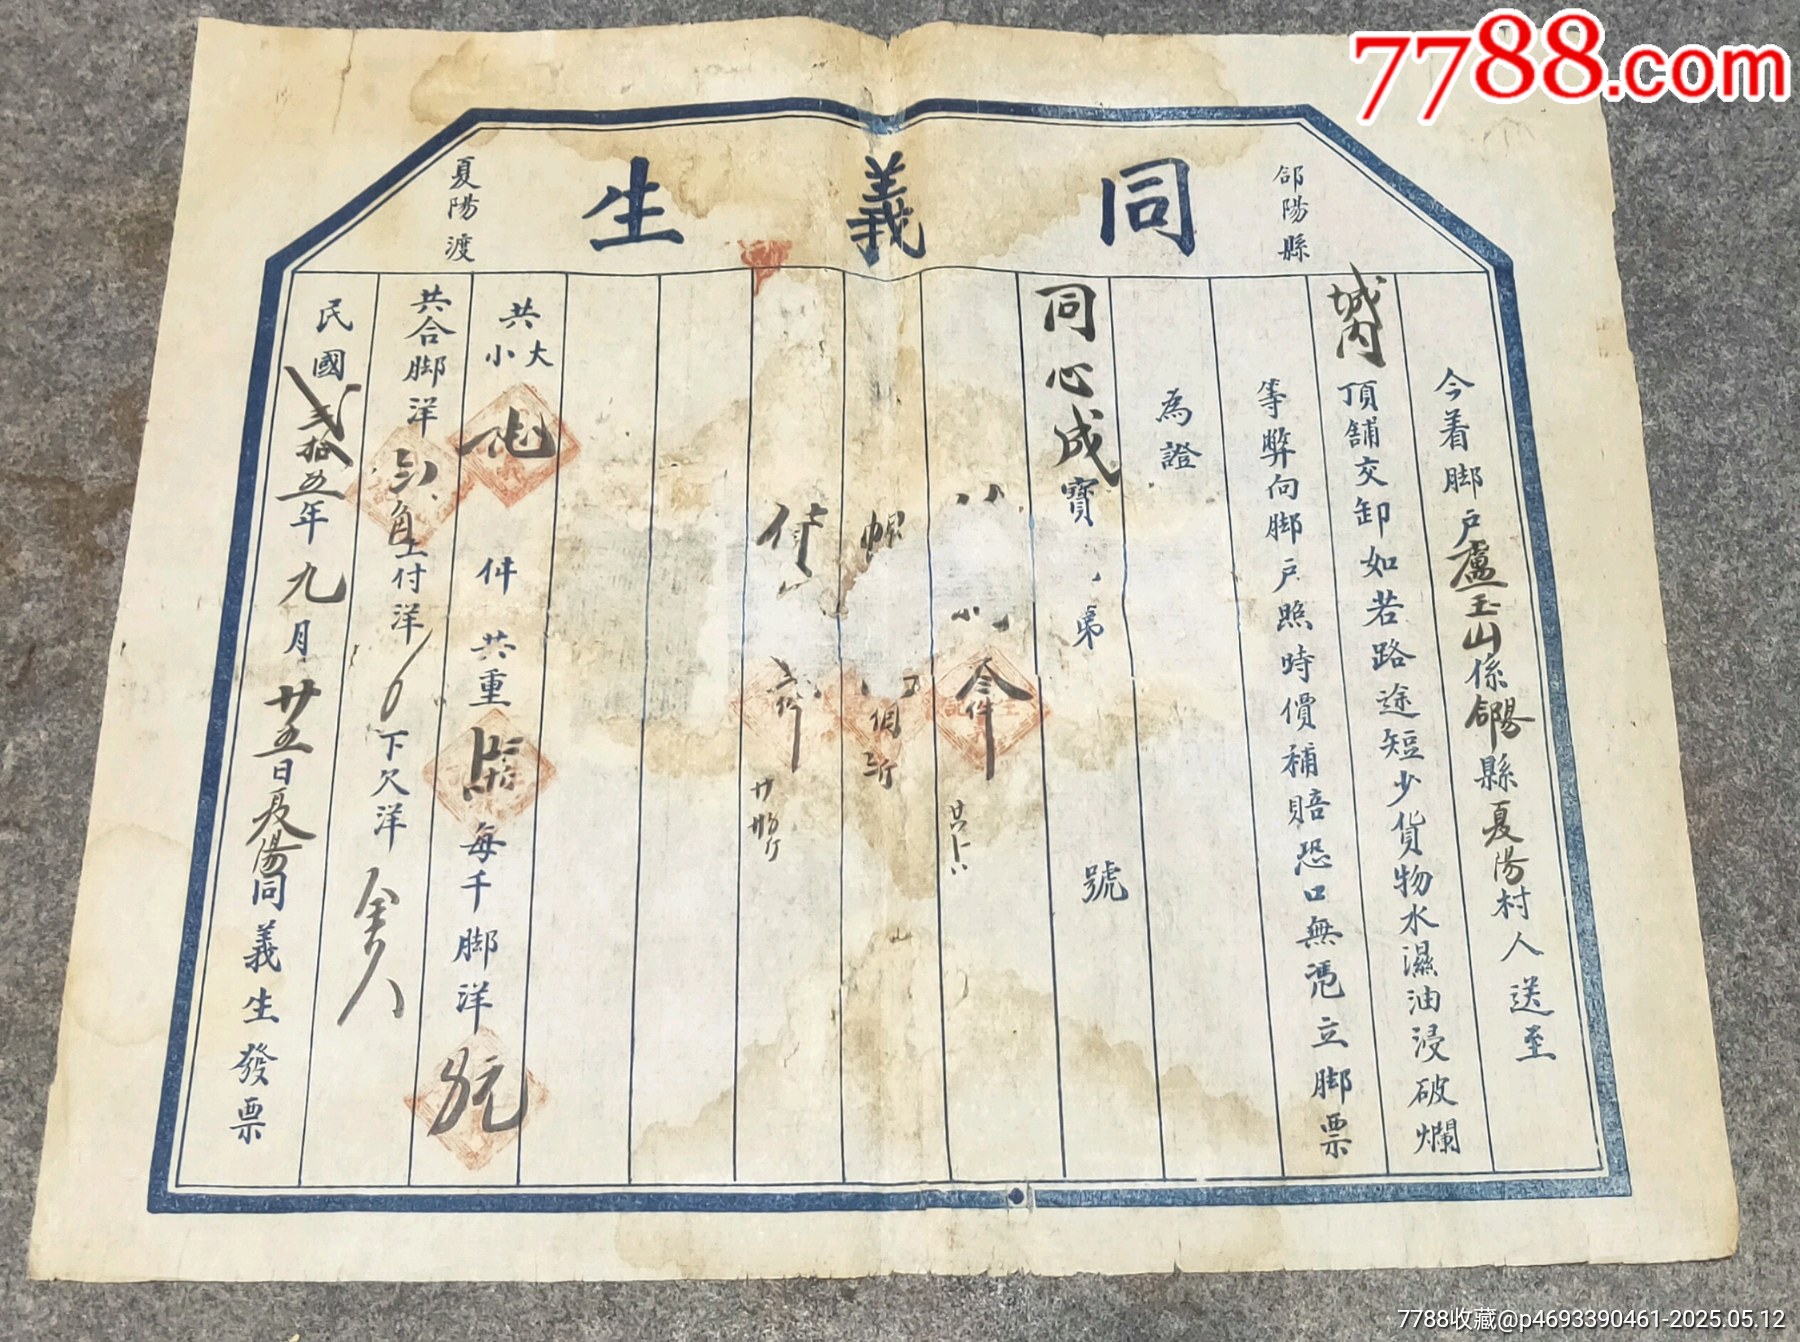 7788.com
郃陽縣
同義生
夏陽渡
今着脚戶盧玉山係郃陽縣夏陽村人送至
城內頂舖交卸如若路途短少貨物水濕油浸破爛
等弊向脚戶照時價補賠恐口無凭立脚票
為證
同心成寶 第 號
叁件
共大小 件共重 每千脚洋
共合脚洋 角 付洋 下欠洋
民國弍拾五年九月廿五日夏陽同義生發票
7788收藏@p4693390461-2025.05.12